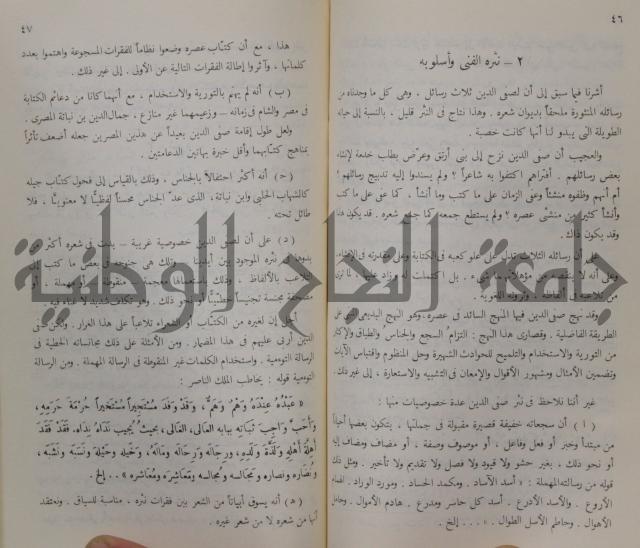 ٤٦
٢ — نثره الفنى وأسلوبه
أشرنا فيما سبق إلى أن لصفى الدين ثلاث رسائل ، وهى كل ما وجدناه من
رسائله المنثورة ملحقاً بديوان شعره . وهذا نتاج فى النثر قليل ، بالنسبة إلى حياته
الطويلة التى يبدو لنا أنها كانت خصبة .
والعجيب أن صفى الدين نزح إلى بنى أرتق وعرّض بطلب خدمة لإنشاء
بعض رسائلهم . أفتراهم اكتفوا به شاعراً ؟ ولم يسندوا إليه تدبيج رسائلهم ؟
أم أنهم وظفوه منشئاً وعفى الزمان على ما كتب وما أنشأ ، كما عفى على ما كتب
وأنشأ كثير من منشئى عصره ؟ ولم يستطع جمعه كما جمع شعره . قد يكون هذا
وقد يكون ذاك .
على أن رسائله الثلاث تدل على علو كعبه فى الكتابة وعلى مقدرته فى الإنشاء،
وعلى أنه لا ينقصه من مؤهلاتهما شىء . بل اكتملت له وزاد عليها ،
من تلاعبه فى ألفاظه ، وثروته اللغوية .
وقد نهج صفى الدين فيها المنهج السائد فى عصره، وهو النهج البديعى المبنى على
الطريقة الفاضلية . وقصارى هذا النهج : التزام السجع والجناس والطباق والإكثار
من التورية والاستخدام والتلميح للحوادث الشهيرة وحل المنظوم واقتباس الآيات
وتضمين الأمثال ومشهور الأقوال والإمعان فى التشبيه والاستعارة ، إلى غير ذلك.
غير أننا نلاحظ فى نثر صفى الدين عدة خصوصيات منها :
( ا ) أن سجعاته خفيفة قصيرة مقبولة فى جملتها ، يتكون بعضها أحياناً
من مبتدأ وخبر أو فعل وفاعل ، أو موصوف وصفة ، أو مضاف ومضاف إليه
أو نحو ذلك ، بغير حشو ولا قيود ولا فصل ولا تقديم ولا تأخير . ومثل ذلك
قوله من رسالته المهملة : « أسد الآساد . ومكمد الحساد . ومورد الوراد . الهمام
الأروع . والأسد الأدرع . أسد كل حاسر ومدرع . هادم الأموال . وحامل
الأهوال . وحاطم الأسل الطوال . » ... إلخ .
٤٧
هذا ، مع أن كتّاب عصره وضعوا نظاماً للفقرات المسجوعة واهتموا بعدد
كلماتها ، وآثروا إطالة الفقرات التالية عن الأولى . إلى غير ذلك .
( ب ) أنه لم يهتم بالتورية والاستخدام ، مع أنهما كانا من دعائم الكتابة
فى مصر والشام فى زمانه — وزعيمهما غير منازع ، جمال الدين بن نباتة المصرى .
ولعل طول إقامة صفى الدين بعيداً عن هذين المصرين جعله أضعف تأثراً
بمناهج كتّابهما وأقل خبرة بهاتين الدعامتين .
( ح ) أنه أكثر احتفالاً بالجناس ، وذلك بالقياس إلى فحول كتّاب جيله
كالشهاب الحلبى وابن نباتة، الذى عد الجناس محسناً لفظيًّا لا معنويًّا ، فلا
طائل تحته .
( د ) على أن لصفى الدين خصوصية غريبة — بدت فى شعره أكثر من
بدوها فى نثره الموجود بين أيدينا — وتلك هى جنوحه فى بعض ما كتب إلى
التلاعب بالألفاظ ، وذلك باستعمالها معجمة أو منقوطة أو مهملة ، أو
مصحفة مجنسة تجنيساً خطيًّا أو نحو ذلك . وهو تكلف شديد لا غناء فيه .
أجل إن لغيره من الكتّاب أو الشعراء تلاعباً على هذا الغرار . ولكن صفى
الدين أربى عليهم فى هذا المضمار . ومن الأمثلة على ذلك مجانساته الخطية فى
الرسالة التومية . واستخدام الكلمات غير المنقوطة فى الرسالة المهملة . ومن الرسالة
التومية قوله : يخاطب الملك الناصر :
« عَبْدُهُ عِنْدَهُ وَهُمْ وَهَمٌّ ، وَقَدْ وَفَدَ مُسْتَجِيراً مُسْتَخِيراً حُرْمَةَ حَرَمِهِ ،
وَأَحَبَّ وَاجِبَ ببابه المالى، العالى، بحيث يُجيب نداه بداه. فَقَدْ فَقَدَ
أَهْلَهُ أَهْلِهِ وَلَذَّة وَلَدِهِ، ورجاله وَرحاله ومالَهُ، وخَيله وحيلَهُ ونسَبَه ونَشَبَه،
ونُضَّاره ونصاره ومَجالسه ومُجالسه ومَعاشِرَه ومُعاشِره » .. إلخ .
( ه ) أنه يسوق أبياتاً من الشعر بين فقرات نثره ، مناسبة للسياق . ونعتقد
أنها من شعره لا من شعر غيره .
جامعة النجاح الوطنية